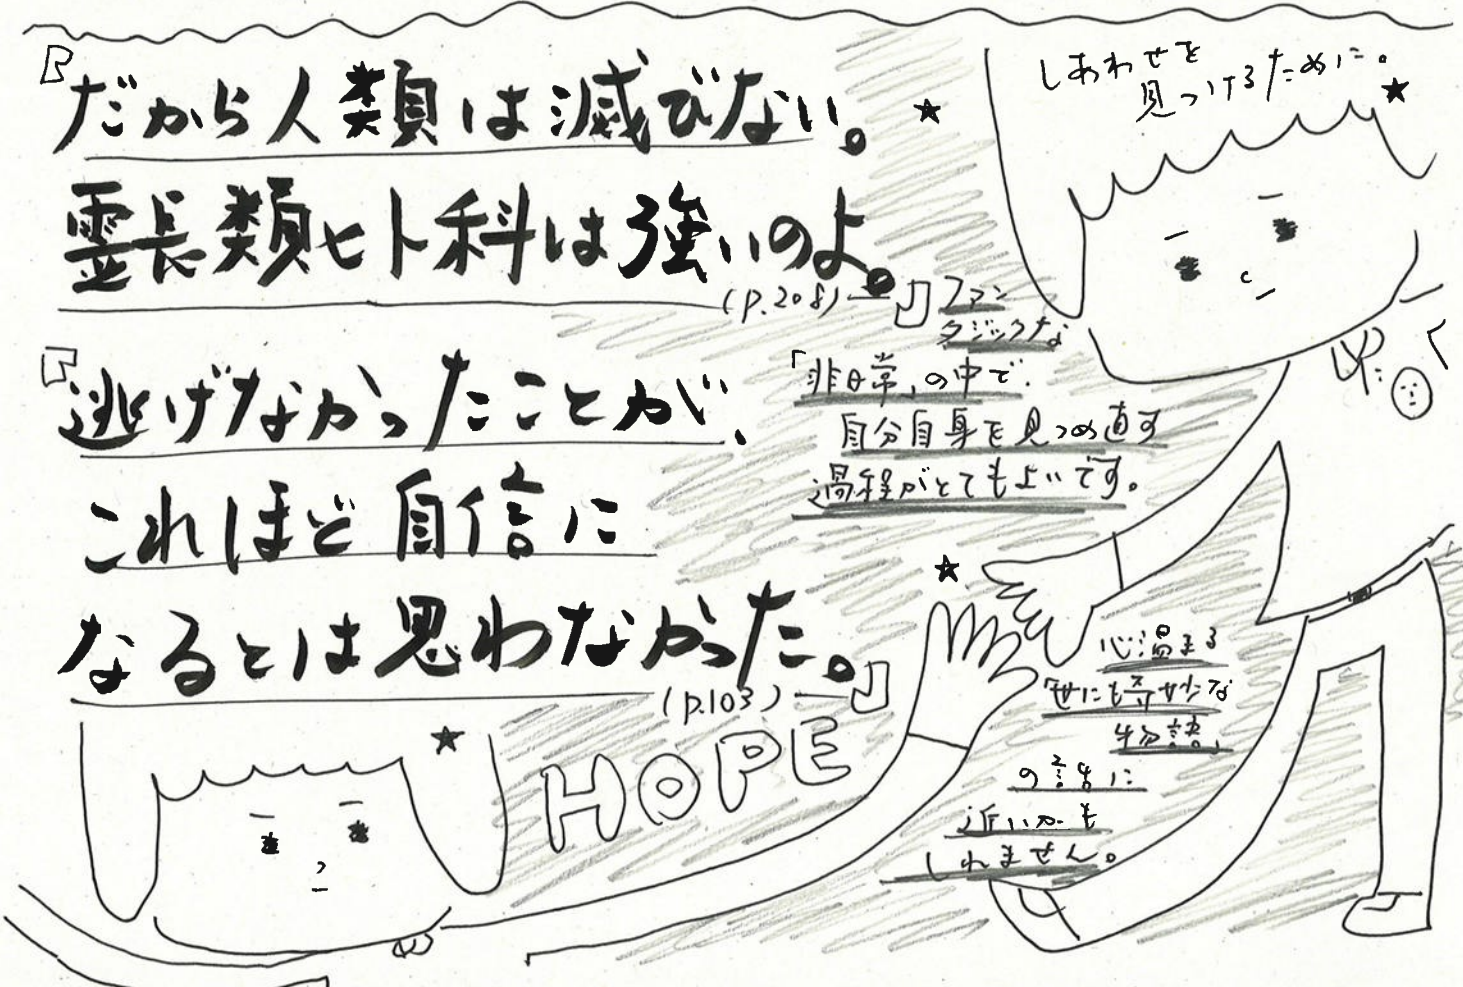 『だから人類は滅びない。
霊長類ヒト科は強いのよ。
(p.208)ー』
『逃げなかったことが、
これほど自信に
なるとは思わなかった。
(p.103)ー』
しあわせを
見つけるために。
ファン
タジックな
「非日常」の中で、
自分自身を見つめ直す
過程がとてもよいです。
心温まる
「世にも奇妙な
物語」
の話に
近いかも
しれません。
HOPE